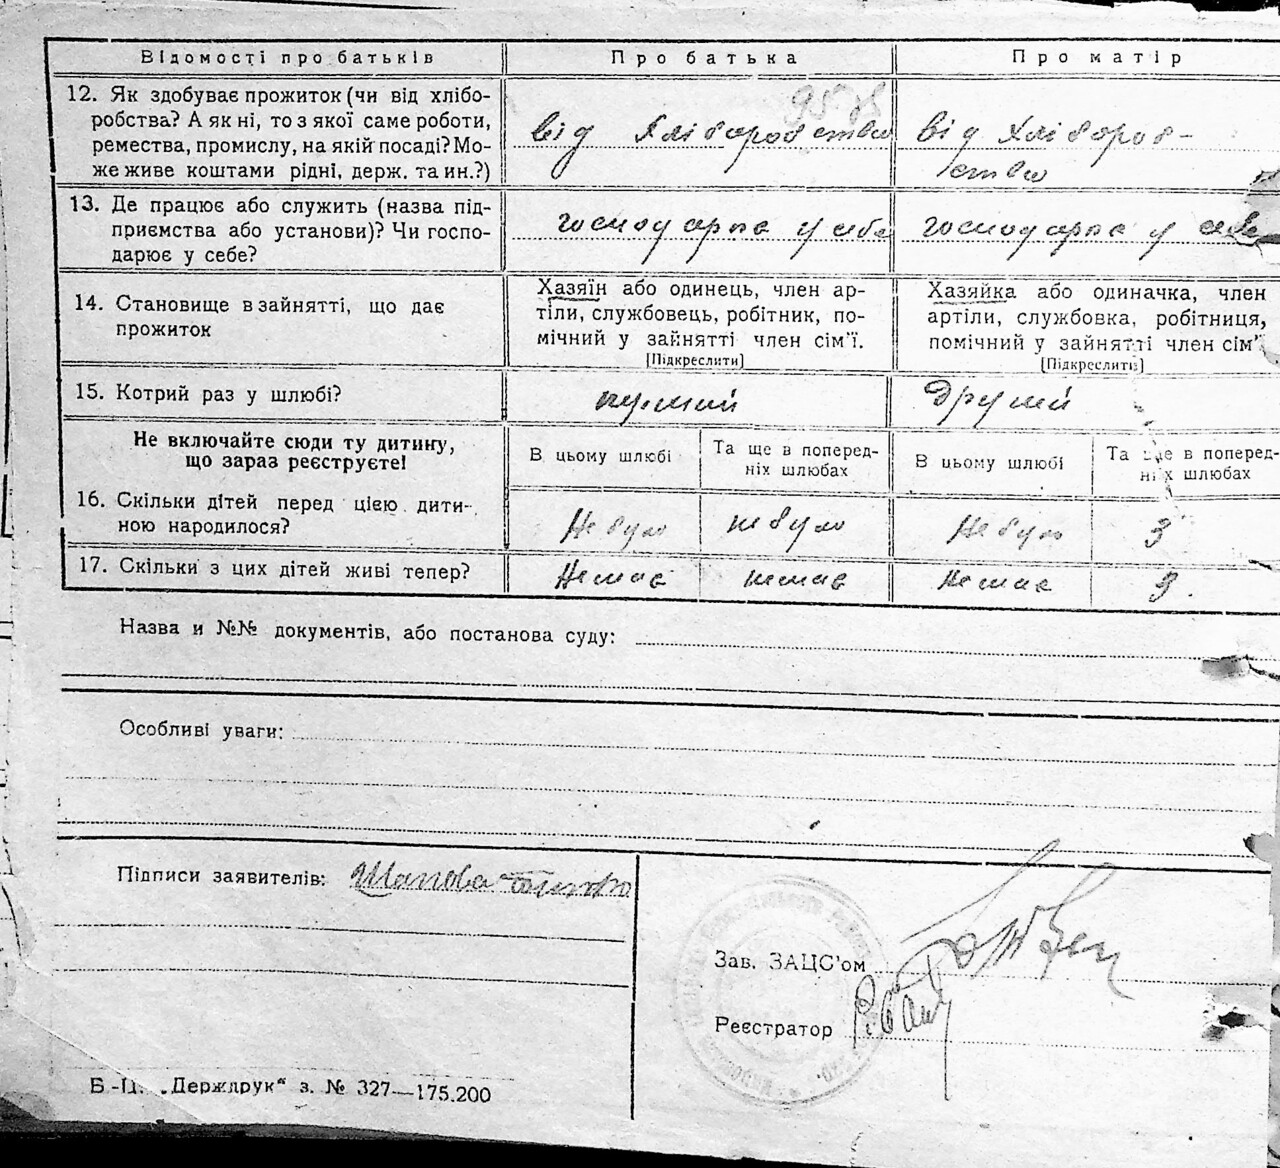 Відомості про батьків Про батька Про матір
12. Як здобуває прожиток (чи від хлібо-
робства? А як ні, то з якої саме роботи,
ремества, промислу, на якій посаді? Мо-
же живе коштами рідні, держ. та ин.?)
95
від хліборобства
від хлібороб-
ства
13. Де працює або служить (назва під-
приємства або установи)? Чи госпо-
дарює у себе?
господарює у себе
господарює у себе
14. Становище в зайнятті, що дає
прожиток
Хазяїн або одинець, член ар-
тіли, службовець, робітник, по-
мічний у зайнятті член сім'ї.
[Підкреслити]
Хазяйка або одиначка, член
артіли, службовка, робітниця,
помічний у зайнятті член сім'ї
[Підкреслити]
15. Котрий раз у шлюбі? перший другий
Не включайте сюди ту дитину,
що зараз реєструєте!
В цьому шлюбі
Та ще в поперед-
ніх шлюбах
В цьому шлюбі
Та ще в поперед-
ніх шлюбах
16. Скільки дітей перед цією дити-
ною народилося?
Не було не було Не було 3
17. Скільки з цих дітей живі тепер? Немає немає Немає 3.
Назва и №№ документів, або постанова суду:
Особливі уваги:
Підписи заявителів:
Зав. ЗАЦС'ом
Реєстратор
Б.-Ц. „Держдрук“ з. № 327—175.200